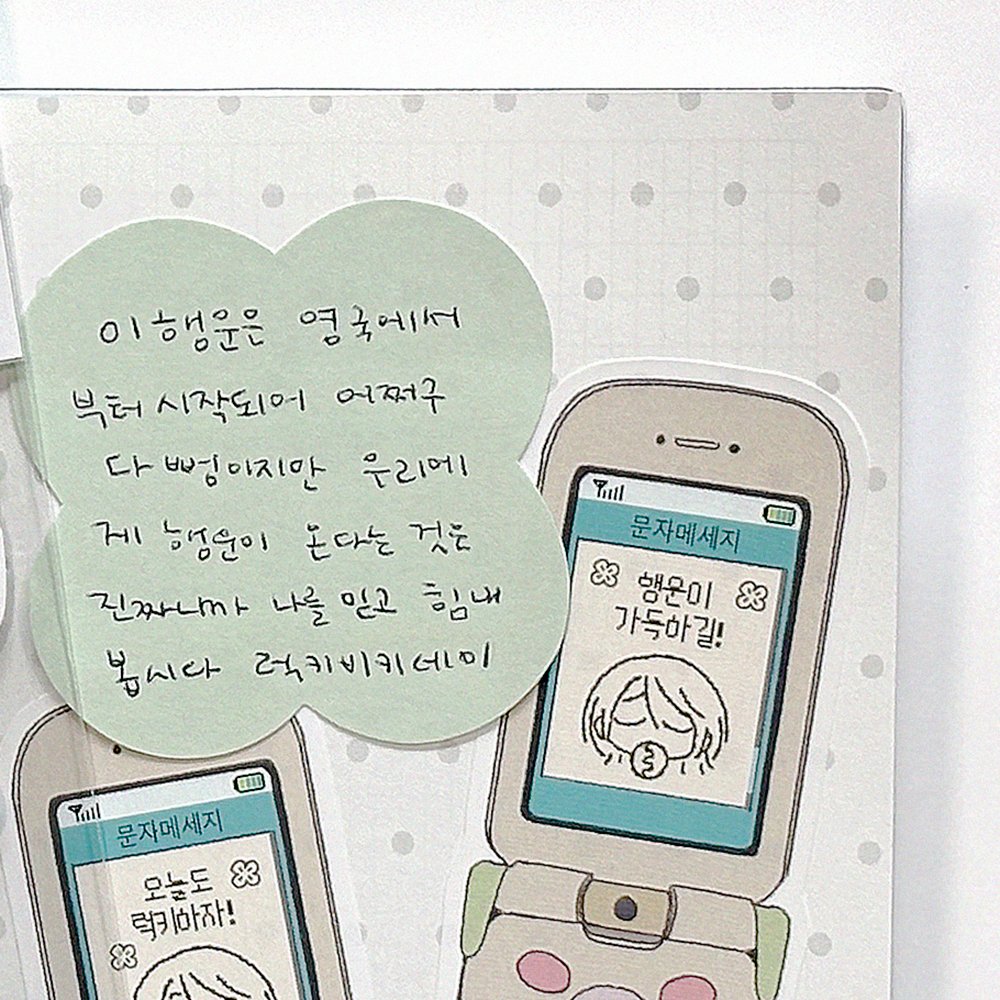 이 행운은 영국에서
부터 시작되어 어쩌구
다 뻥이지만 우리에
제 행운이 온다는 것은
진짜니까 나를 믿고 힘내
봅시다 럭키비키데이
문자메세지
행운이
가득하길!
문자메세지
오늘도
럭키하자!